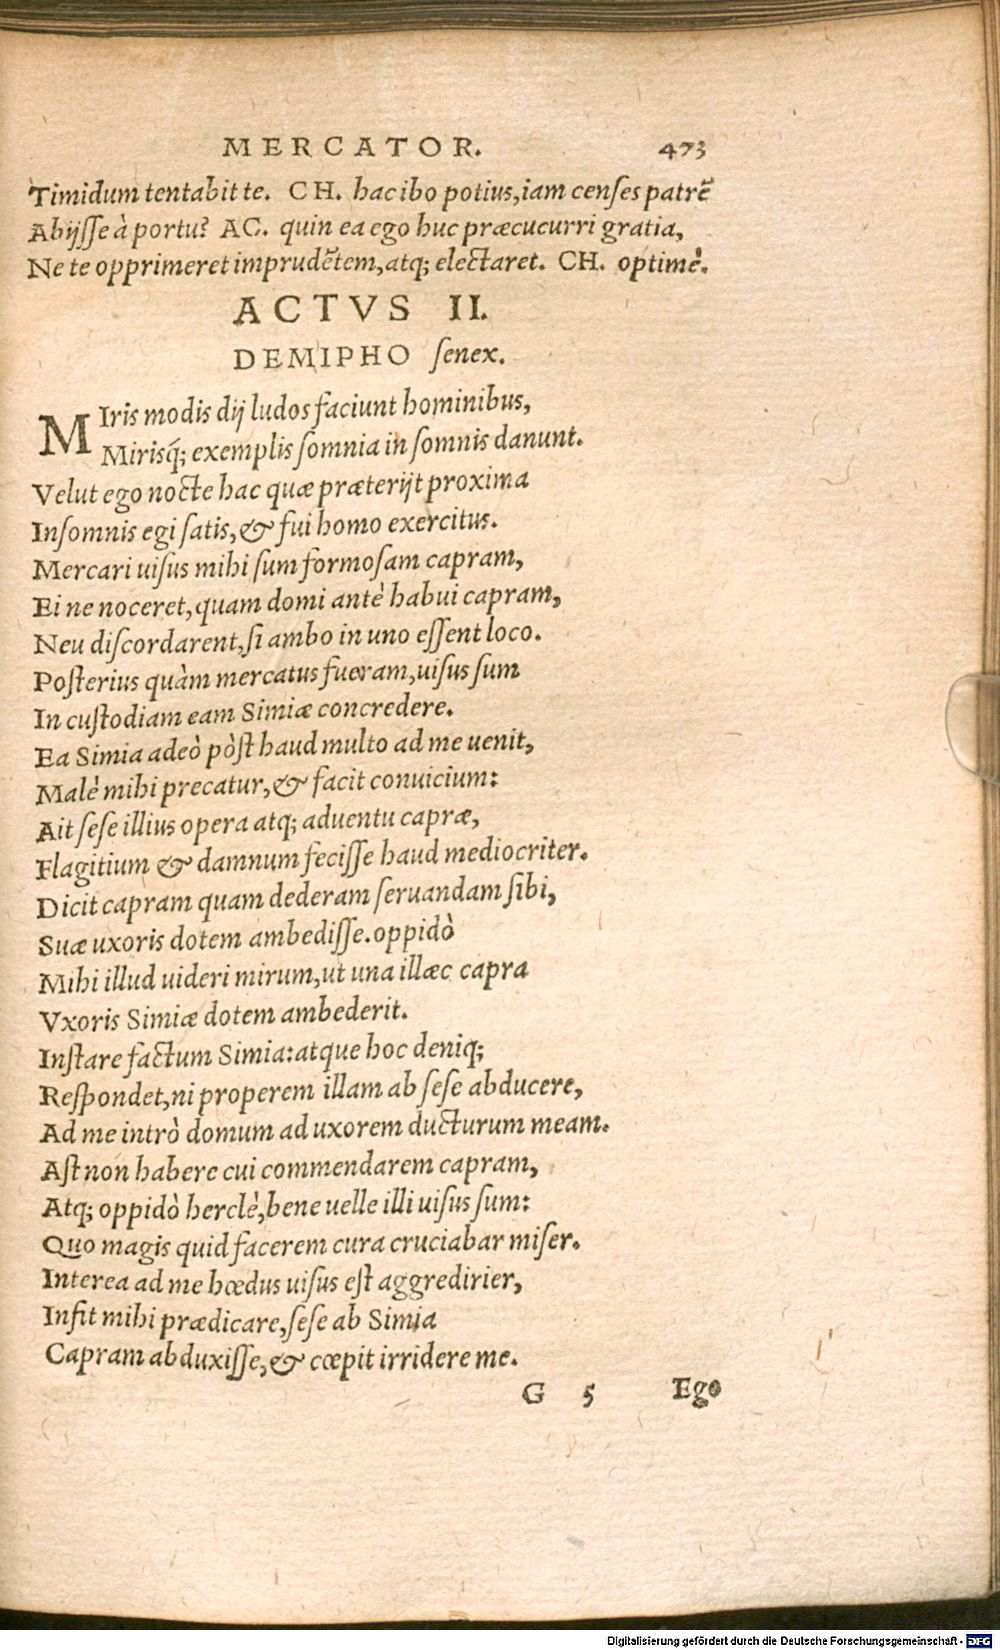 MERCATOR. 473
Timidum tentabit te. CH. hac ibo potius, iam censes patrẽ
Abijſſe à portu? AC. quin ea ego huc præcucurri gratia,
Ne te opprimeret imprudẽtem, atq; electaret. CH. optimè.
ACTVS II.
DEMIPHO ſenex.
MIris modis dij ludos faciunt hominibus,
Mirisq́; exemplis ſomnia in ſomnis danunt.
Velut ego nocte hac quæ præterijt proxima
Inſomnis egi ſatis, & fui homo exercitus.
Mercari uiſus mihi ſum formoſam capram,
Ei ne noceret, quam domi antè habui capram,
Neu diſcordarent, ſi ambo in uno eſſent loco.
Poſterius quàm mercatus fueram, uiſus ſum
In cuſtodiam eam Simiæ concredere.
Ea Simia adeò pòſt haud multo ad me uenit,
Malè mihi precatur, & facit conuicium:
Ait ſeſe illius opera atq; aduentu capræ,
Flagitium & damnum feciſſe haud mediocriter.
Dicit capram quam dederam ſeruandam ſibi,
Suæ uxoris dotem ambediſſe. oppidò
Mihi illud uideri mirum, ut una illæc capra
Vxoris Simiæ dotem ambederit.
Inſtare factum Simia: atque hoc deniq;
Reſpondet, ni properem illam ab ſeſe abducere,
Ad me intrò domum ad uxorem ducturum meam.
Aſt non habere cui commendarem capram,
Atq; oppidò herclè, bene uelle illi uiſus ſum:
Quo magis quid facerem cura cruciabar miſer.
Interea ad me hœdus uiſus eſt aggredirier,
Infit mihi prædicare, ſeſe ab Simia
Capram abduxiſſe, & cœpit irridere me.
G 5 Ego
Digitalisierung gefördert durch die Deutsche Forschungsgemeinschaft - DFG